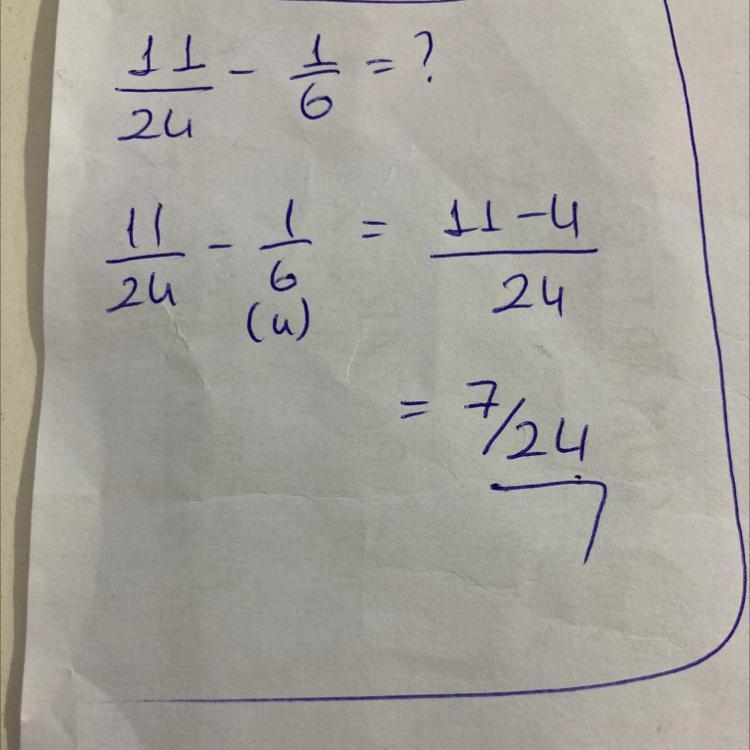 11/24 - 1/6 = ?
11/24 - 1/6 = 11-4/24
(4)
= 7/24